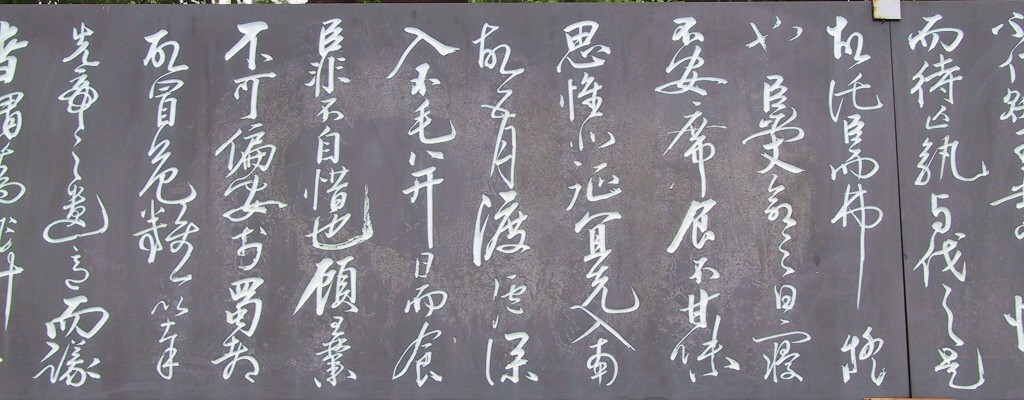 而待亡孰与伐之是
故託臣而弗疑
也臣受命之日寢
不安席食不甘味
思惟北征宜先入南
故五月渡瀘深
入不毛并日而食
臣非不自惜也顧王業
不可偏安於蜀都
故冒危難以奉
先帝之遺意而議
者謂為非計